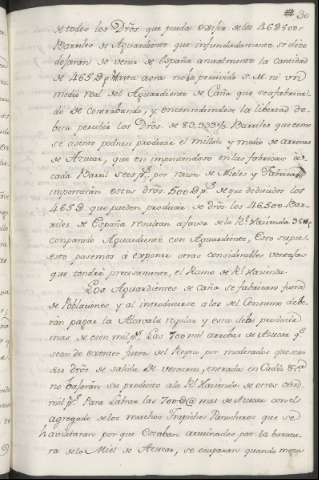 30
de todos los Dros. que pueda vestir de los 46 D 500
Barriles de Aguardiente que infundadamente se dice
dejarán de venir de España anualmente la cantidad
de 465 D p.s hasta aora no ha percivido S. M. ni un
medio real del Aguardiente de Caña que se a fabricado
de Contrabando, y entendiendose la libertad de-
berá percibir los Dros. de 83.333⅓ Barriles que como
se asiento podrán producir el millon y medio de arrovas
de Azucar, que en imponiendose en las fabricas de
cada Barril seis p.s por razon de Mieles y
importarán estos dros. 500 D p.s de que deducidos los
465 D que pueden producir de dros. los 46500 Bar-
riles de España resultan a favor de la Rl. Hacienda 35
comparando Aguardiente con Aguardiente, Esto supues
to pasemos á exponer otras considerables ventajas
que tendrá precisamente, el Ramo de Rl. Hacienda.
Los Aguardientes de Caña se fabrican fuera
de Poblaciones y al introducirse a los del Consumo debe-
rán pagar la Alcavala regular y esta sola producirá
mas de cien mil p.s Las 700 mil arrobas de Azucar q.e
sean de extraer fuera del Reyno por moderados que sean
sus dros. de salida de Veracruz, entrada en Cadiz &ra.
no bajarán su producto ala Rl. Hacienda de otros cien
mil p.s Para Labrar las 700 D @ mas de Azucar con el
agregado de los muchos Trapiches Panocheros que se
habilitaran por que estaban arruinados por la baratu-
ra de las Miel de Azucar, se ocuparan quando menos